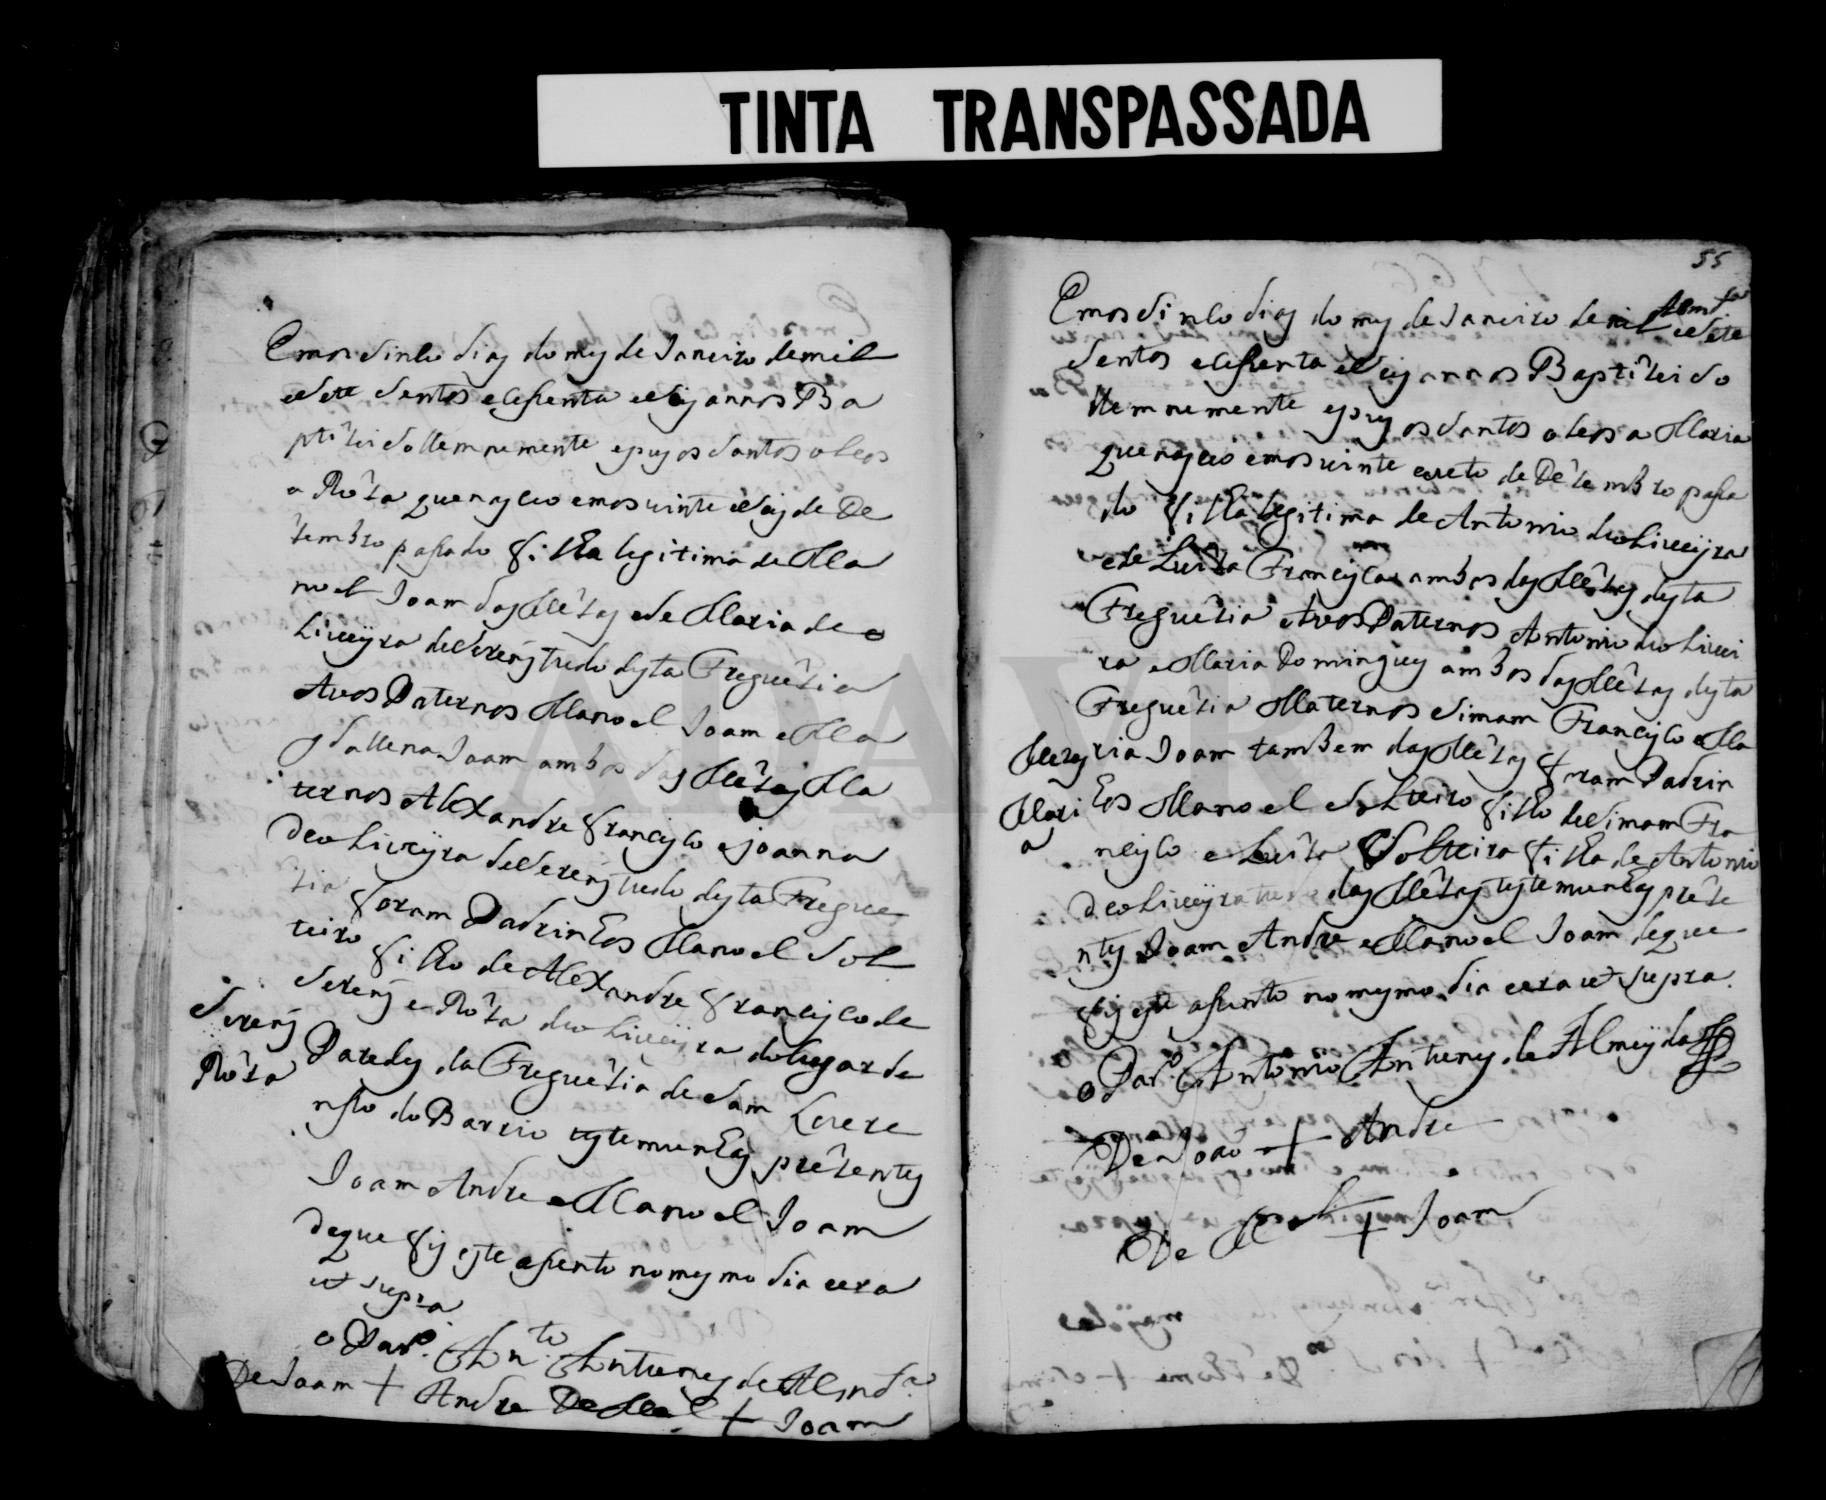 TINTA TRANSPASSADA
Emos sinco dias do mes de Janeiro de mil
e sete sentos e sesenta e seis annos Ba
ptizei sollemnemente e pus os santos oleos
a Roza que nasceo emos vinte e seis de De
zembro pasado filha legitima de Ma
noel Joam das Mezas e de Maria de o
Liveyra de Serem tudo desta Freguezia
Avos Paternos Manoel Joam e Ma
gdallena Joam ambos das Mezas Ma
ternos Alexandre Francisco e Joanna
de o Liveyra de Serem tudo desta Fregue
zia foram Padrinhos Manoel Sol
teiro filho de Alexandre Francisco de
Serem e Roza de o Liveyra do lugar de
Serem
Roza
Paredes da Freguezia de Sam Lorere
nso do Barrio testemunhas prezentes
Joam Andre e Manoel Joam
de que fis este asento no mesmo dia e era
ut supra
o Par.º Ant.º Antunes de Almd.ª
De Joam + Andre De Mel + Joam
55
Emos sinco dias do mes de Janeiro de mil e sete
sentos e sesenta e seis annos Baptizei so
llemnemente e pus os santos oleos a Maria
que nasceo emos vinte e oito de Dezembro pasa
do filha legitima de Antonio de o Liveyra
e de Luiza Francisca ambos das Mezas desta
Freguezia Avos Paternos Antonio de o Livei
ra e Maria Domingues ambos das Mezas desta
Freguezia Maternos Simam Francisco e Ma
ria Joam tambem das Mezas foram Padrin
Mezas
hos Manoel solteiro filho de Simam Fra
Mari
a
ncisco e Luiza Solteira filha de Antonio
de o Liveyra das Mezas testemunhas preze
ntes Joam Andre e Manoel Joam de que
fis este asento no mesmo dia e era ut supra.
o Par.º Antonio Antunes de Almeyda
De João + Andre
De Mel + Joam